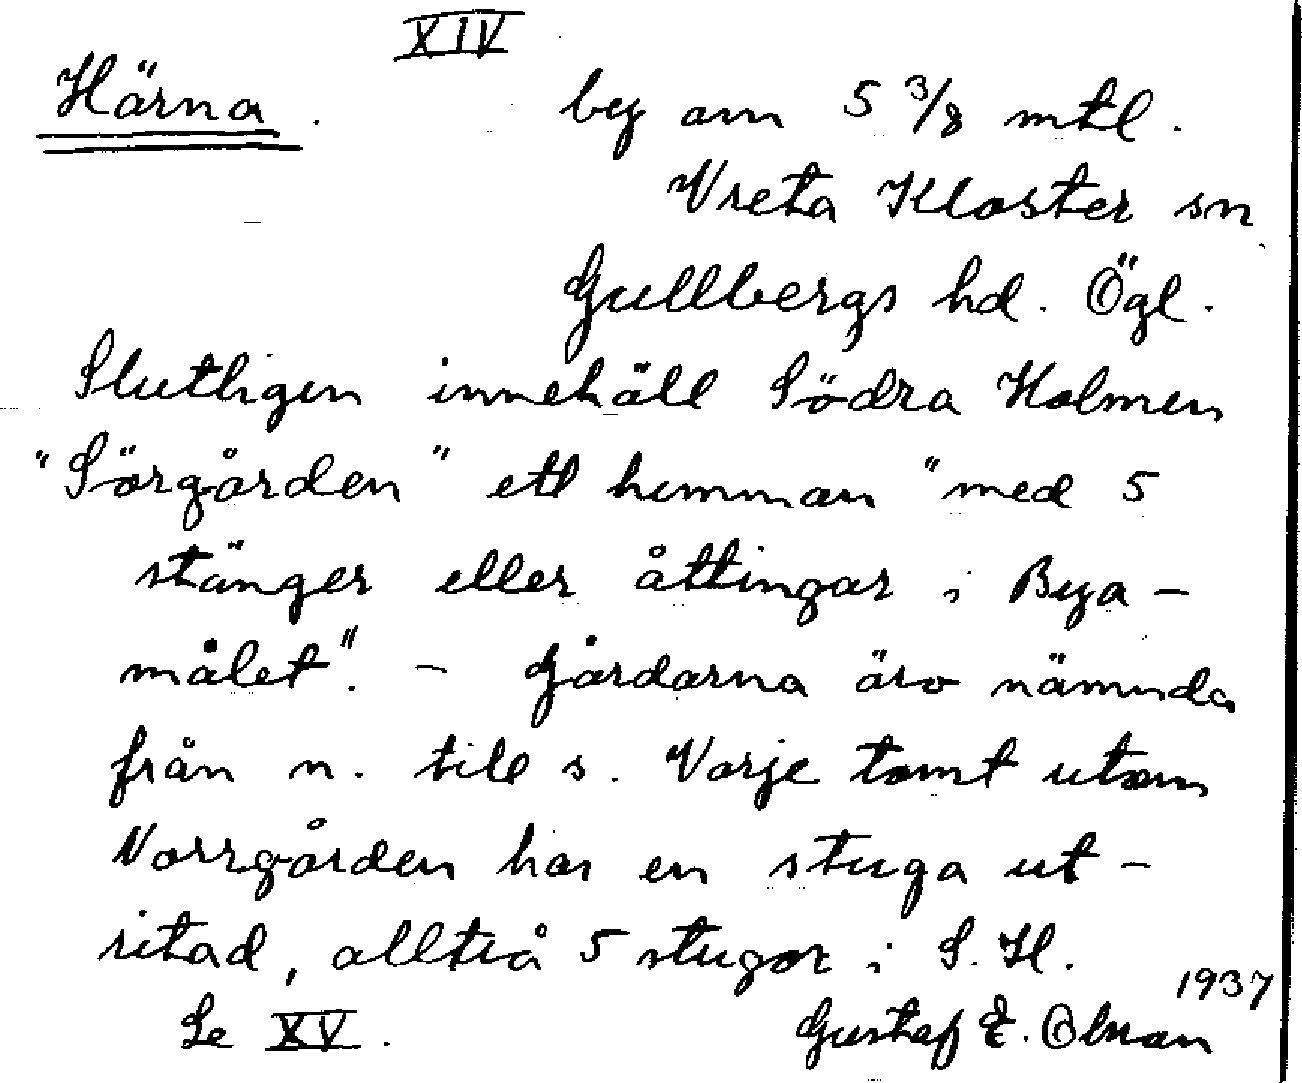 XIV
Härna.
by om 5 3/8 mtl.
Vreta Kloster sn
Gullbergs hd. Ögl.
Slutligen innehöll Södra Holmen
"Sörgården" ett hemman "med 5
stänger eller åttingar i Bya-
målet". - Gårdarna äro nämnda
från n. till s. Varje tomt utom
Norrgården har en stuga ut-
ritad, alltså 5 stugor i S. H.
Se XV.
Gustaf E. Olman 1937